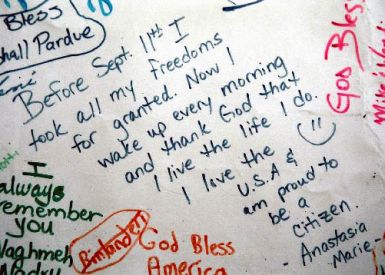 Bless
hall Pardue
Before Sept. 11th I
took all my freedoms
for granted. Now I
wake up every morning
and thank God that
I live the life I do.
I love the
U.S.A &
am proud to
be a
citizen.
- Anastasia
Marie -
God Bless
I
always
remember
you
Naghmeh
God Bless
America